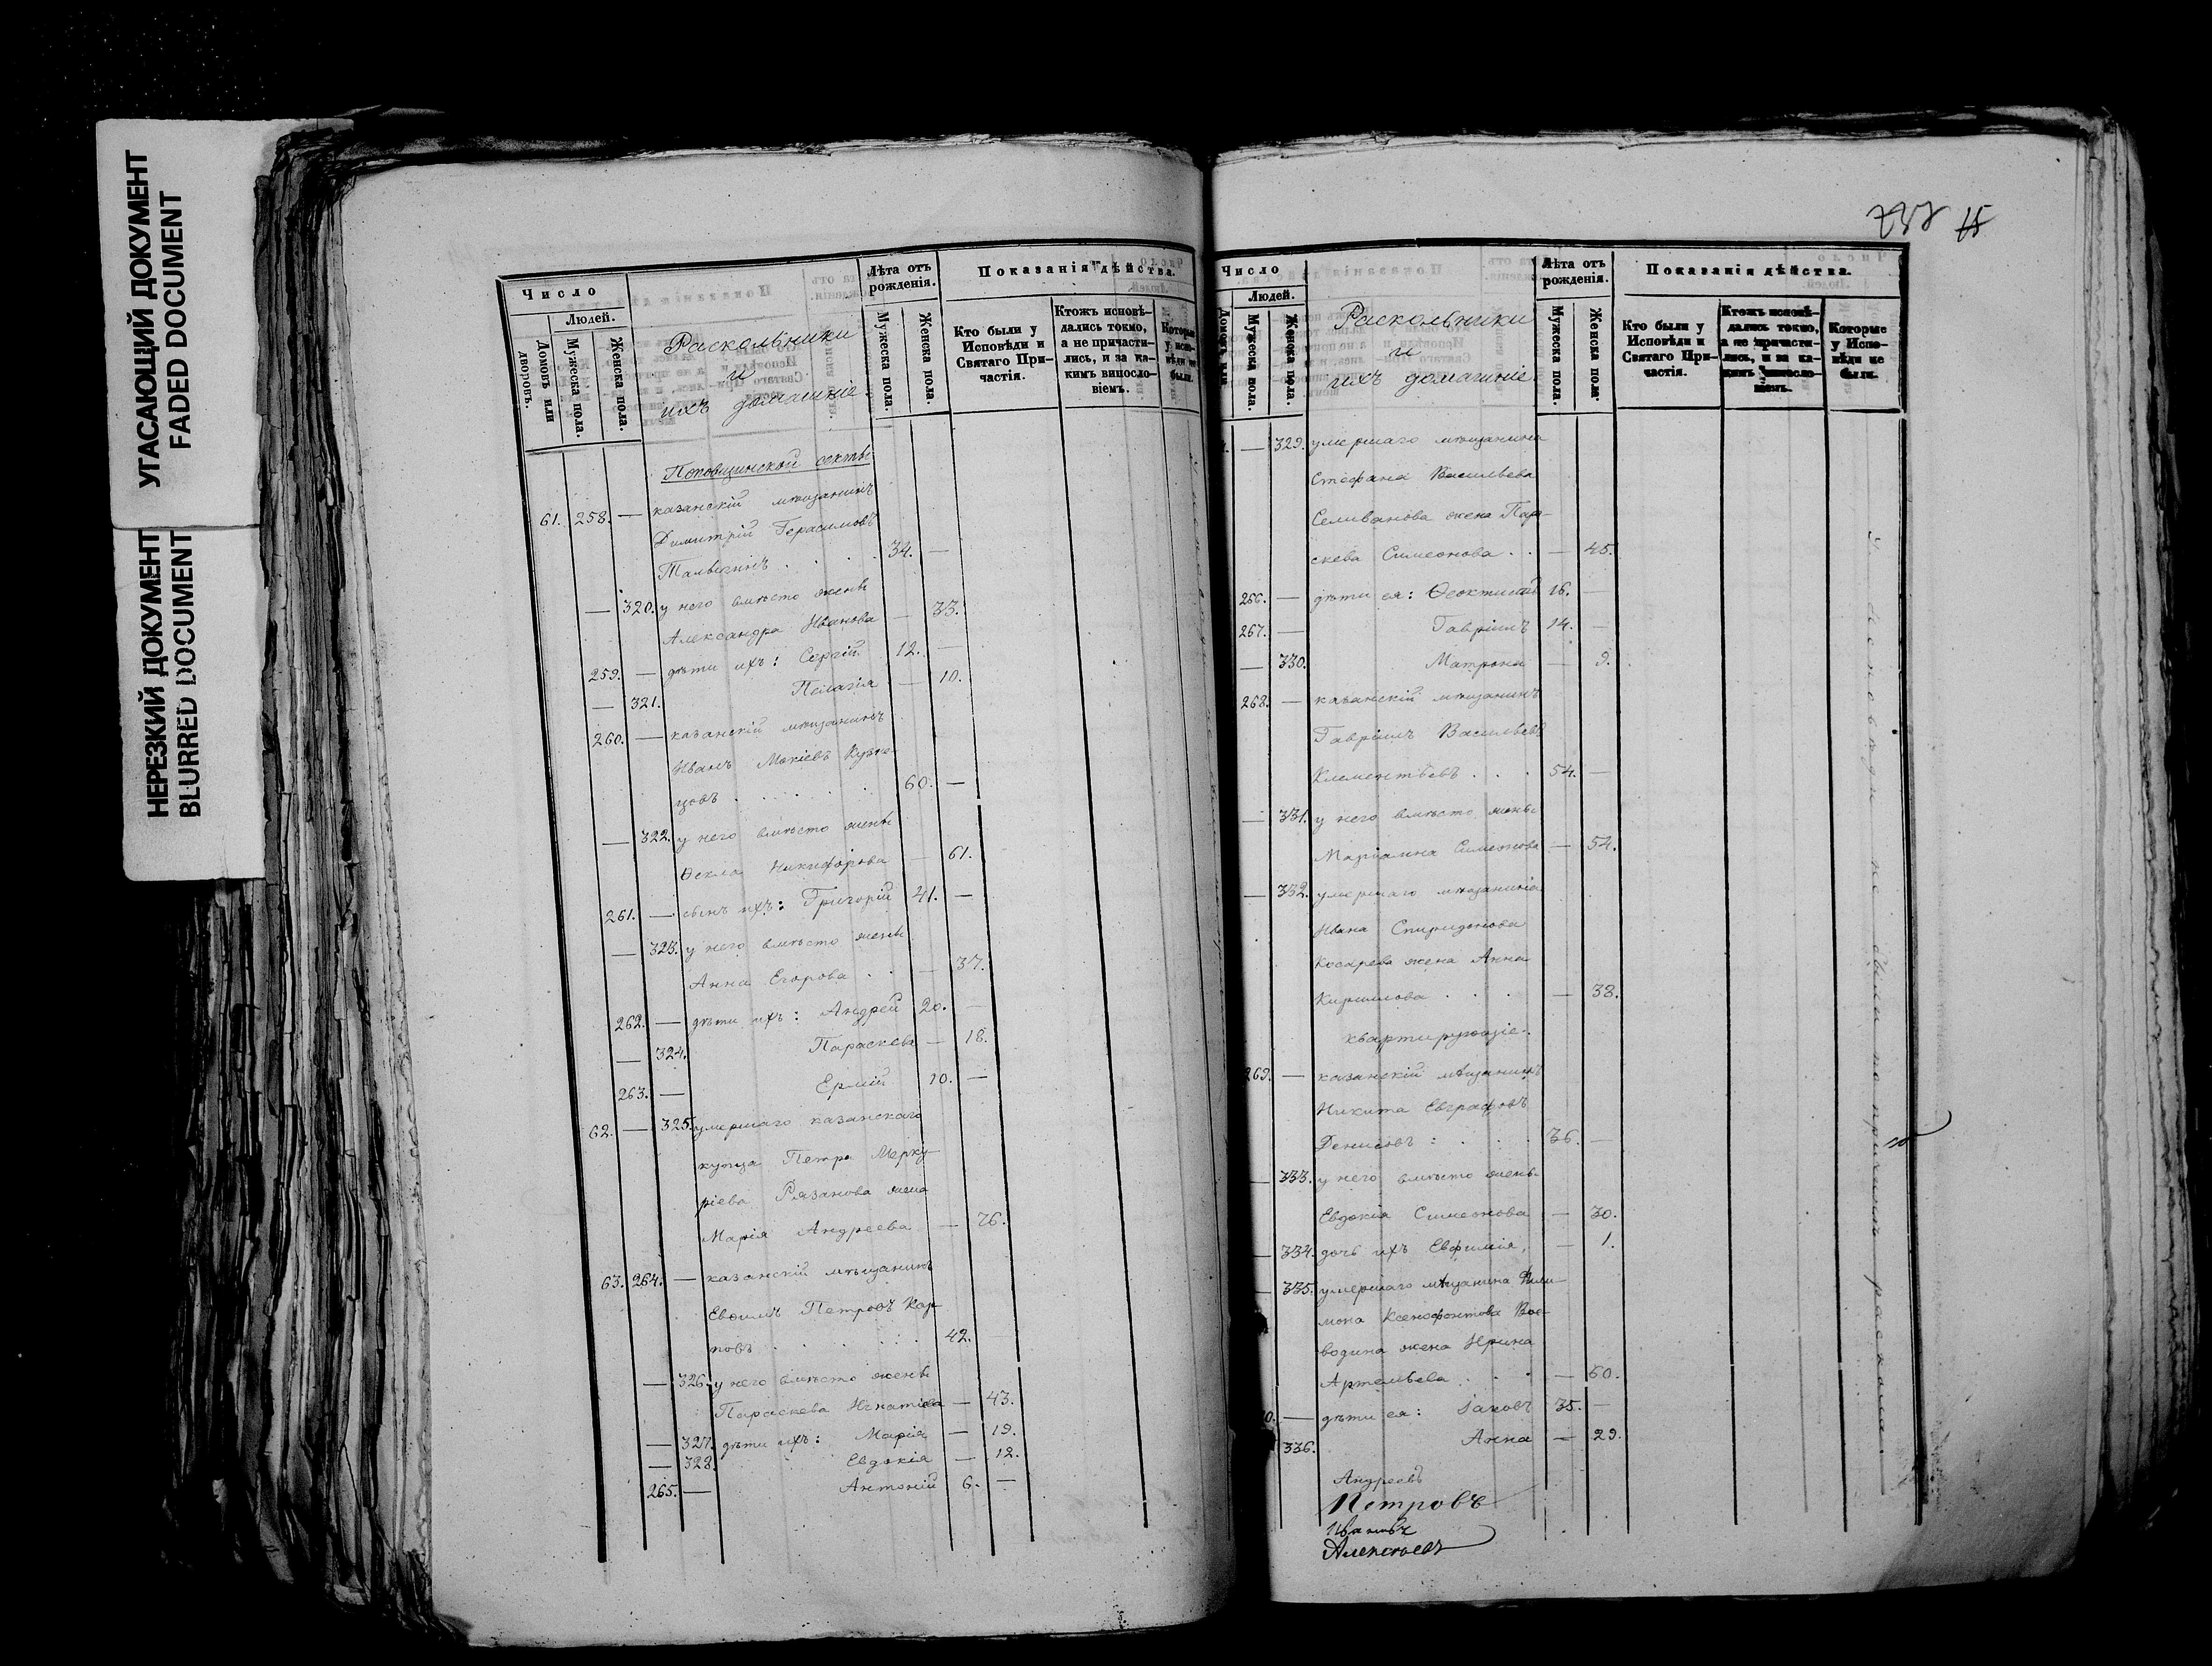 УГАСАЮЩИЙ ДОКУМЕНТ
FADED DOCUMENT
НЕРЕЗКИЙ ДОКУМЕНТ
BLURRED DOCUMENT
Число
Людей.
Домовъ или дворовъ.
Мужеска пола.
Женска пола.
Раскольники
и
ихъ домашніе.
Лѣта отъ рожденія.
Мужеска пола.
Женска пола.
Показанія дѣйства.
Кто были у Исповѣди и Святаго Причастія.
Ктожъ исповѣдались токмо, а не причастились, и за какимъ винословіемъ.
Которые у испо-вѣди не были.
Поповщинской секты
61. 258. — казанскій мѣщанинъ
Димитрій Герасимовъ
34. —
— 320. у него вмѣсто жены
Александра Иванова — 33.
259. — дѣти ихъ: Сергій 12. —
— 321. Пелагія — 10.
260. — казанскій мѣщанинъ
Иванъ Мокіевъ Кузне-
цовъ . . . . . 60. —
— 322. у него вмѣсто жены
Ѳекла Никифорова — 61.
261. — сынъ ихъ: Григорій 41. —
— 323. у него вмѣсто жены
Анна Егорова . . — 37.
262. — дѣти ихъ: Андрей 20. —
— 324. Параскева — 18.
263. — Ермій 10. —
62. — 325. умершаго казанскаго
купца Петра Мерку-
ріева Рязанова жена
Марія Андреева — 76.
63. 264. — казанскій мѣщанинъ
Петровъ Кар-
повъ . . . . . 42.
— 326. у него вмѣсто жены
Параскева Игнатіева — 43.
— 327. дѣти ихъ: Марія — 19.
— 328. Евдокія — 12.
265. — Антоній 6. —
Число
Людей.
Мужеска пола.
Женска пола.
Раскольники
и
ихъ домашніе.
Лѣта отъ рожденія.
Мужеска пола.
Женска пола.
Показанія дѣйства.
Кто были у Исповѣди и Святаго Причастія.
Ктожъ исповѣдались токмо, а не причастились, и за какимъ винословіемъ.
Которые у Испо-вѣди не были.
— 329. умершаго мѣщанина
Стефана Васильева
Селиванова жена Пара-
скева Симеонова . . — 45.
266. — дѣти ея: Ѳеоктистъ 16. —
267. — Гавріилъ 14. —
— 330. Матрона — 9.
268. — казанскій мѣщанинъ
Гавріилъ Васильевъ
Клементьевъ . . . 54. —
— 331. у него вмѣсто жены
Маріамна Симеонова — 54.
— 332. умершаго мѣщанина
Ивана Спиридонова
Косарева жена Анна
Кириллова . . . — 38.
квартирующіе.
269. — казанскій мѣщанинъ
Никита Евграфовъ
Денисовъ . . . 36. —
— 333. у него вмѣсто жены
Евдокія Симеонова — 30.
— 334. дочь ихъ Евфимія, — 1.
— 335. умершаго мѣщанина Фили-
мона Ксенофонтова Вое-
водина жена Ирина
Артемьева . . . — 60.
— дѣти ея: Іаковъ 35. —
336. Анна — 29.
Андреевъ
Петровъ
Ивановъ
Алексѣевъ
У исповѣди не были по причинѣ раскола